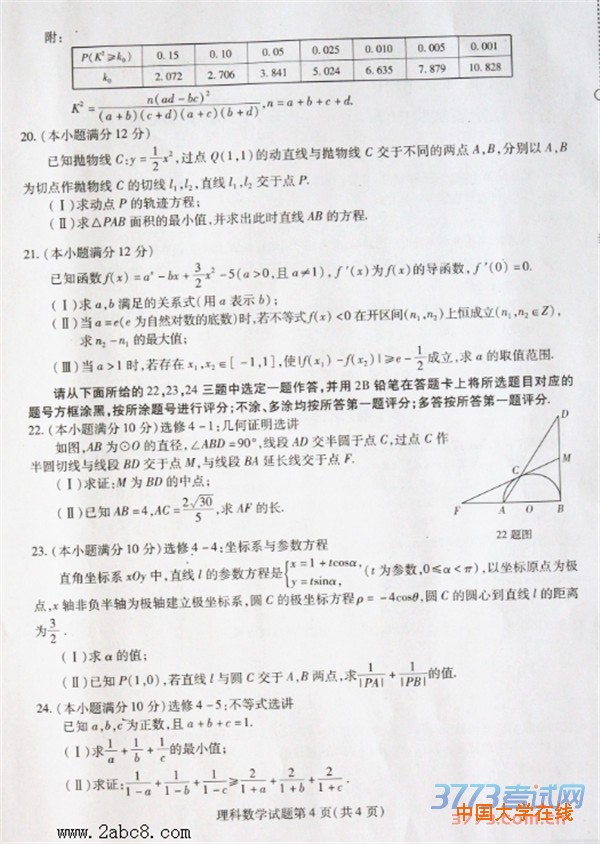 附:
P(K²≥k₀) 0.15 0.10 0.05 0.025 0.010 0.005 0.001
k₀ 2.072 2.706 3.841 5.024 6.635 7.879 10.828
K²=n(ad-bc)²/((a+b)(c+d)(a+c)(b+d)),n=a+b+c+d.
20.(本小题满分12分)
已知抛物线C:y=1/2x²,过点Q(1,1)的动直线与抛物线C交于不同的两点A,B,分别以A,B
为切点作抛物线C的切线l₁,l₂,直线l₁,l₂交于点P.
(Ⅰ)求动点P的轨迹方程;
(Ⅱ)求△PAB面积的最小值,并求出此时直线AB的方程.
21.(本小题满分12分)
已知函数f(x)=aˣ-bx+3/2x²-5(a>0,且a≠1),f′(x)为f(x)的导函数,f′(0)=0.
(Ⅰ)求a,b满足的关系式(用a表示b);
(Ⅱ)当a=e(e为自然对数的底数)时,若不等式f(x)<0在开区间(n₁,n₂)上恒成立(n₁,n₂∈Z),
求n₂-n₁的最大值;
(Ⅲ)当a>1时,若存在x₁,x₂∈[-1,1],使|f(x₁)-f(x₂)|≥e-1/2成立,求a的取值范围.
请从下面所给的22,23,24三题中选定一题作答,并用2B铅笔在答题卡上将所选题目对应的
题号方框涂黑,按所涂题号进行评分;不涂、多涂均按所答第一题评分;多答按所答第一题评分.
22.(本小题满分10分)选修4-1:几何证明选讲
如图,AB为⊙O的直径,∠ABD=90°,线段AD交半圆于点C,过点C作
半圆切线与线段BD交于点M,与线段BA延长线交于点F.
(Ⅰ)求证:M为BD的中点;
(Ⅱ)已知AB=4,AC=2√30/5,求AF的长.
D
M
C
F A O B
22题图
23.(本小题满分10分)选修4-4:坐标系与参数方程
直角坐标系xOy中,直线l的参数方程是{x=1+tcosα, y=tsinα, (t为参数,0≤α<π),以坐标原点为极
点,x轴非负半轴为极轴建立极坐标系,圆C的极坐标方程ρ=-4cosθ,圆C的圆心到直线l的距离
为3/2.
(Ⅰ)求α的值;
(Ⅱ)已知P(1,0),若直线l与圆C交于A,B两点,求1/|PA|+1/|PB|的值.
24.(本小题满分10分)选修4-5:不等式选讲
已知a,b,c为正数,且a+b+c=1.
(Ⅰ)求1/a+1/b+1/c的最小值;
(Ⅱ)求证:1/(1-a)+1/(1-b)+1/(1-c)≥2/(1+a)+2/(1+b)+2/(1+c).
理科数学试题第4页(共4页)
3773考试网
中国大学在线
3773.com.cn
www.2abc8.com